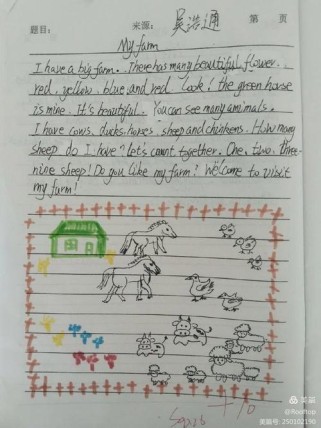 题目： 来源： 吴浩通 第 页
My farm
I have a big farm. There has many beautiful flower.
red, yellow, blue and red. Look! the green house
is mine. It's beautiful. You can see many amimals.
I have cows, ducks, horses, sheep and chinkens. How many
sheep do I have? let's count together. One, two, three...
nine sheep! Do you like my farm? Welcome to visit
my farm!
美篇
@Rooftop
美篇号: 250102190